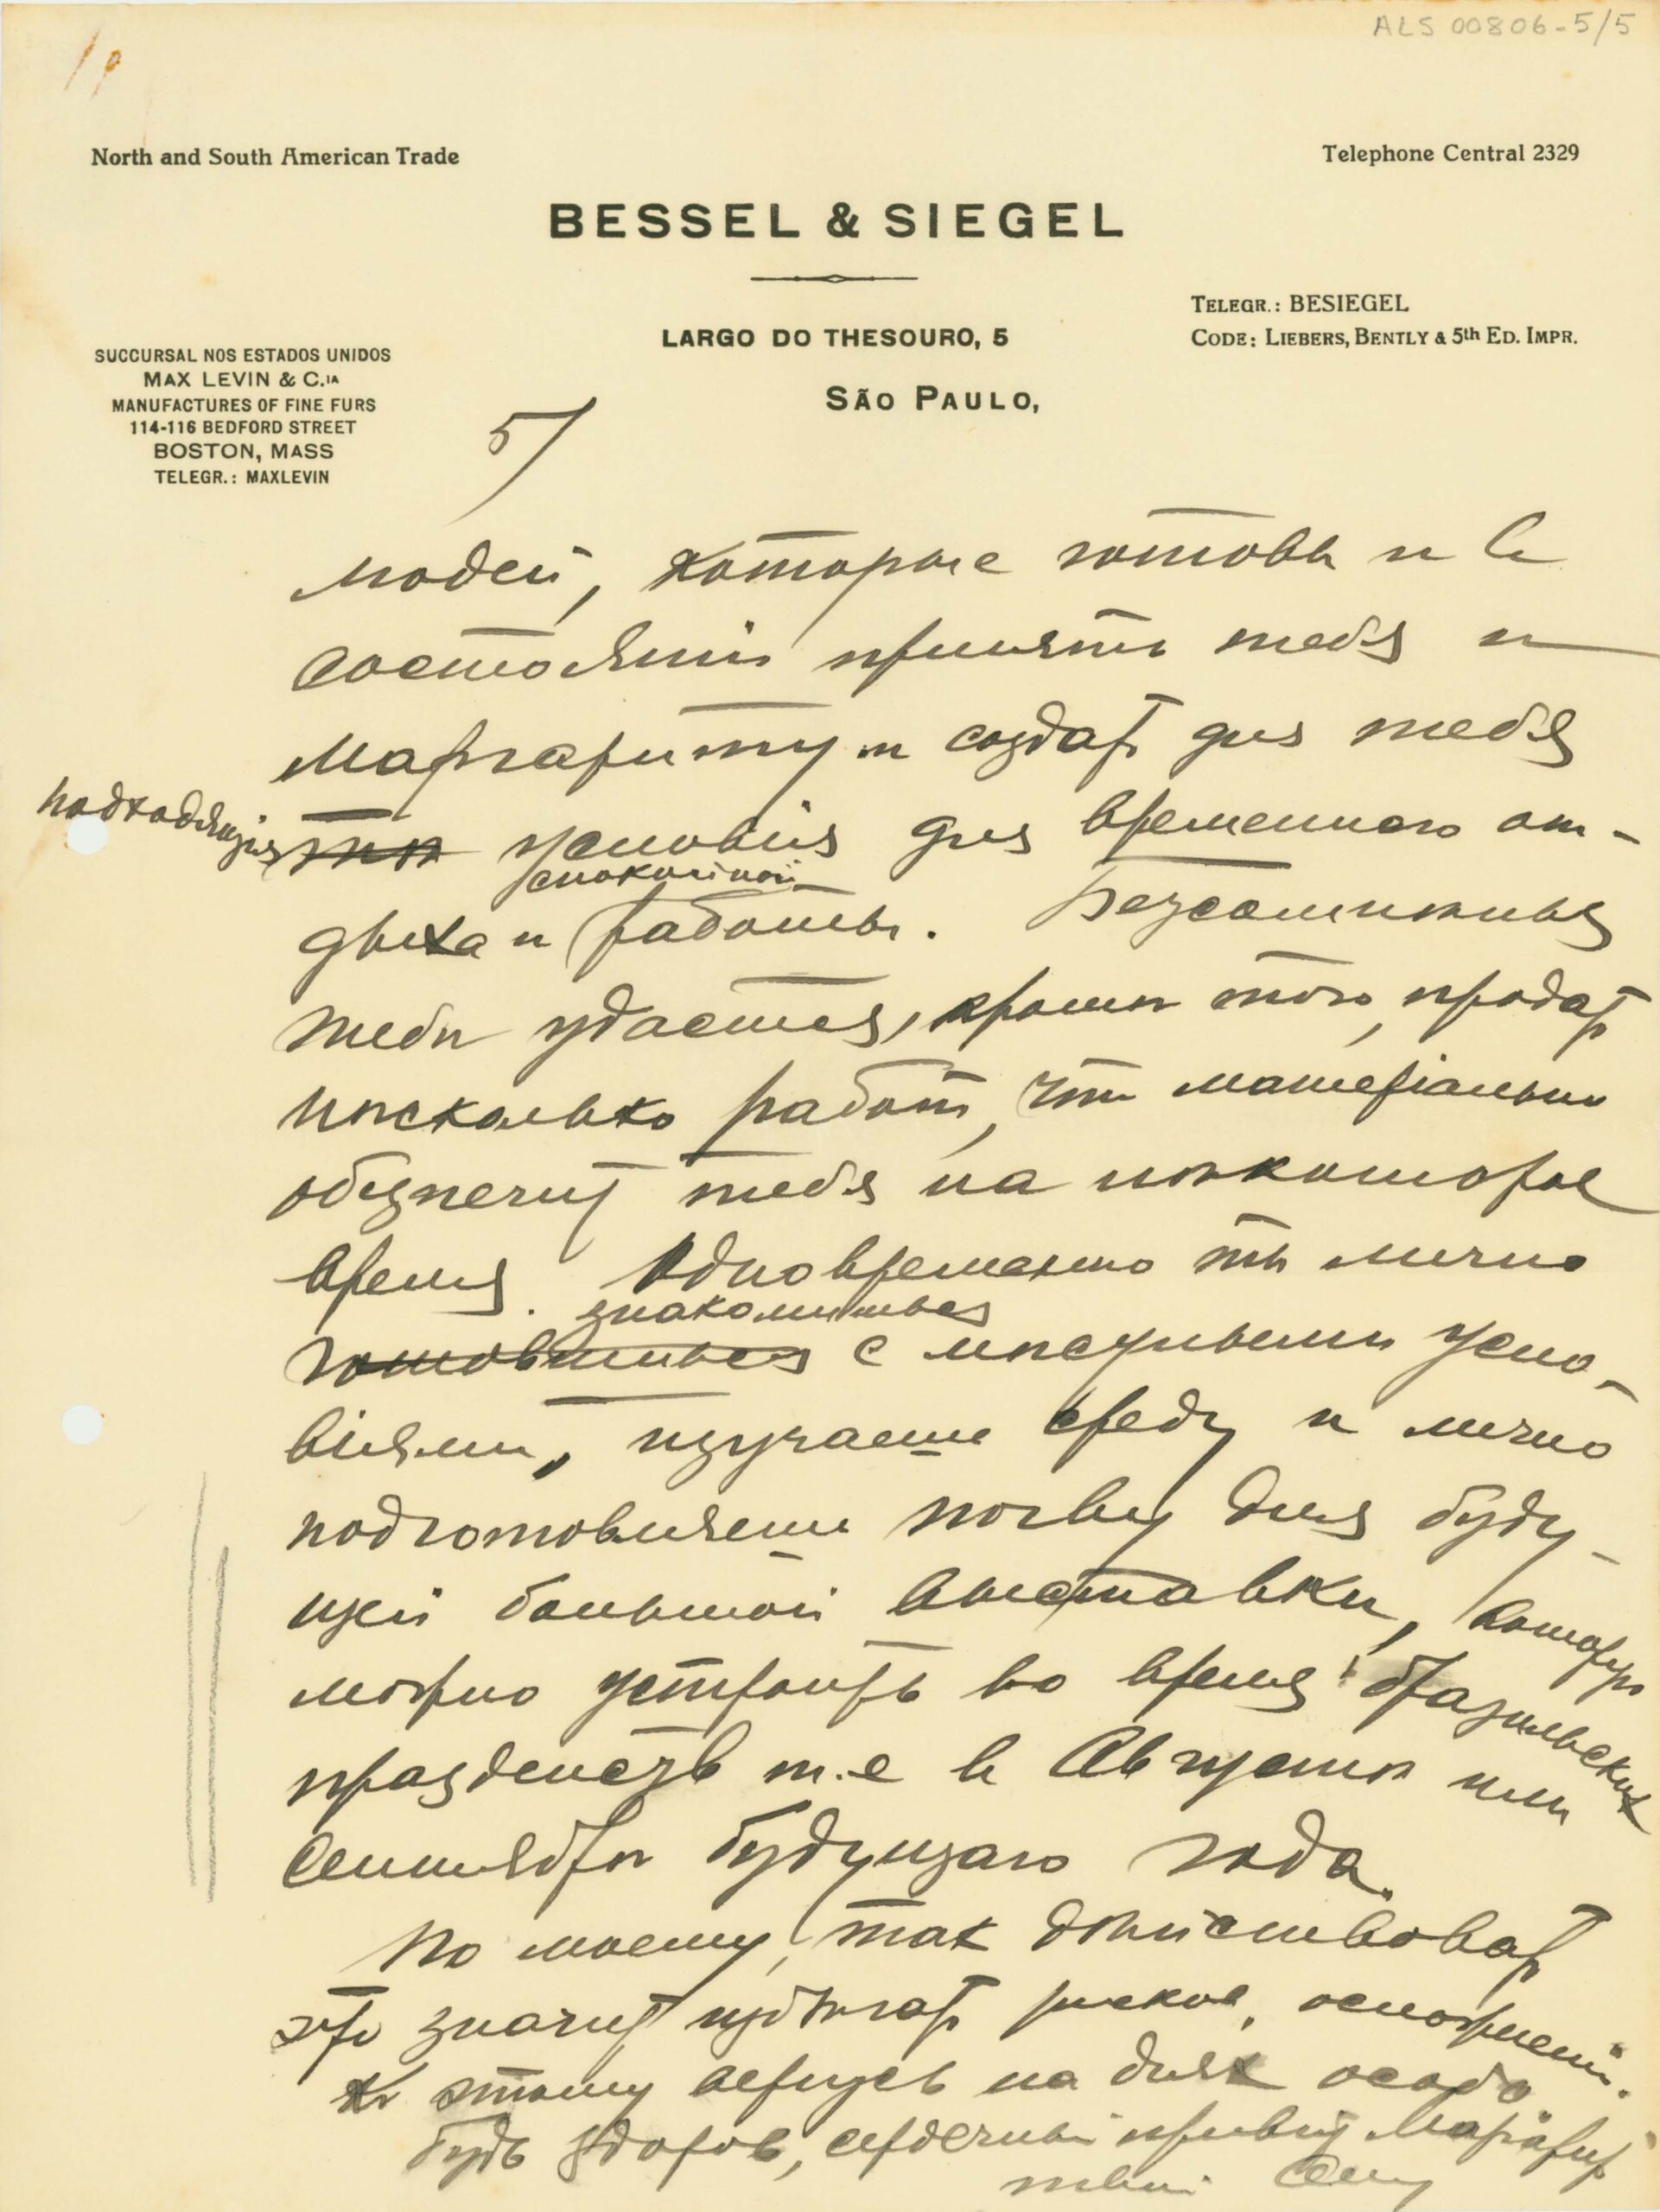 ALS 00806-5/5
North and South American Trade
Telephone Central 2329
BESSEL & SIEGEL
TELEGR.: BESIEGEL
CODE: LIEBERS, BENTLY & 5th ED. IMPR.
LARGO DO THESOURO, 5
SÃO PAULO,
SUCCURSAL NOS ESTADOS UNIDOS
MAX LEVIN & C.IA
MANUFACTURES OF FINE FURS
114-116 BEDFORD STREET
BOSTON, MASS
TELEGR.: MAXLEVIN
5/
людей, которые готовы и в
состоянiи принять тебя и
Маргариту и создать для тебя
подходящiя условiя для временного от-
спокойной
дыха и работы. Безсомнѣнно
тебѣ удастся, кромѣ того, продать
нѣсколько работ, что матерiально
обезпечит тебя на нѣкоторое
время. Одновременно ты лично
знакомишься
готовишься с мѣстными усло-
вiями, изучаешь среду и лично
подготовляешь почву для буду-
щей большой выставки, которую
можно устроить во время бразильских
празденств т.е в Августѣ или
Сентябрѣ будущаго года.
По моему, так дѣйствовать
это значит избѣгать рисков, осложненiй.
К этому вернусь на днях особо
Будь здоров, сердечный привѣт Маргарит
твой